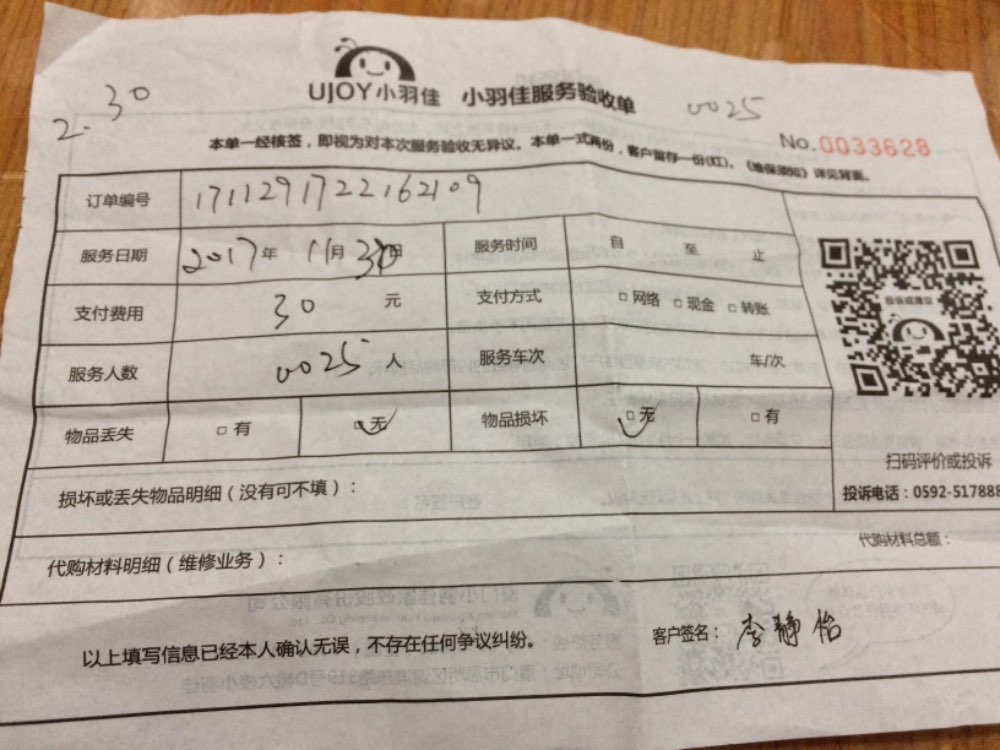 UJOY小羽佳 小羽佳服务验收单
2.30
0025
No.0033628
本单一经核签，即视为对本次服务验收无异议。本单一式两份，客户留存一份(红)。《维保须知》详见背面。
订单编号 1711291722162109
服务日期 2017年 11月 30日 服务时间 自 至 止
支付费用 30 元 支付方式 □网络 □现金 □转账
投诉或建议
服务人数 0025 人 服务车次 车/次
物品丢失 □有 □无 物品损坏 □无 □有
扫码评价或投诉
损坏或丢失物品明细（没有可不填）：
投诉电话：0592-517888
代购材料明细（维修业务）：
代购材料总额：
以上填写信息已经本人确认无误，不存在任何争议纠纷。
客户签名：李静怡